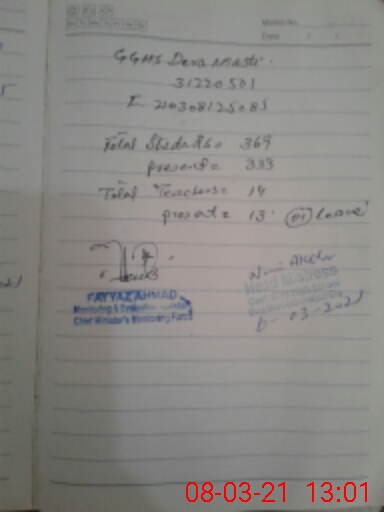 Memo No.
Date / /
GGHS Dera Masti.
31220501
210308125085
Total Students = 369
present = 333
Total Teachers = 14
present = 13. 01 leave
FAYYAZ AHMAD
Monitoring & Evaluation Assistant
Chief Minister's Monitoring Force
Akhtar
Head Mistress
03-2021
08-03-21 13:01